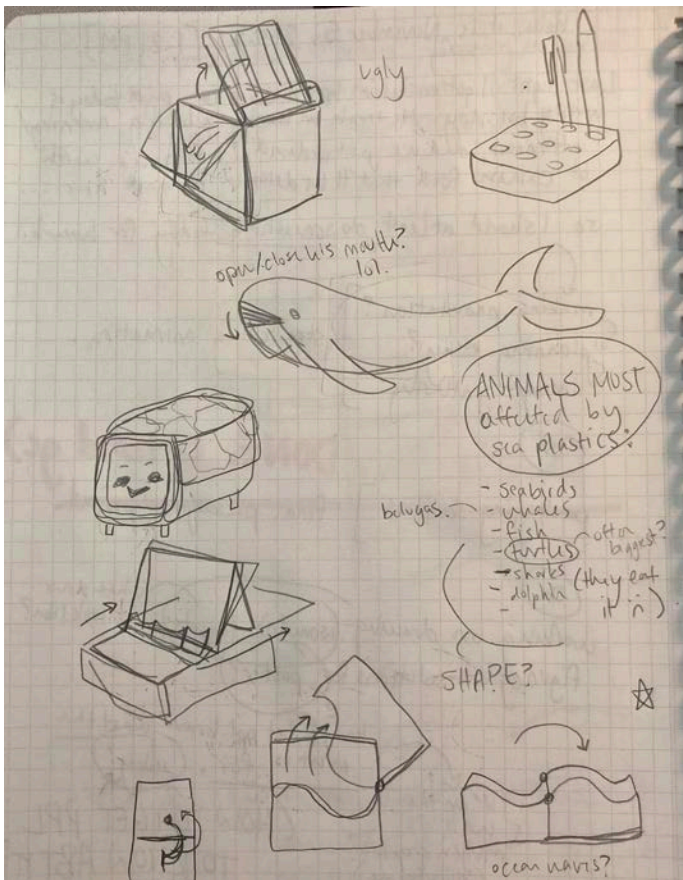 ugly
open/close his mouth?
lol.
ANIMALS MOST
affected by
sea plastics:
- seabirds
belugas. - whales
- fish
- turtles often biggest?
- sharks (they eat it :()
- dolphin
-
SHAPE?
ocean waves?